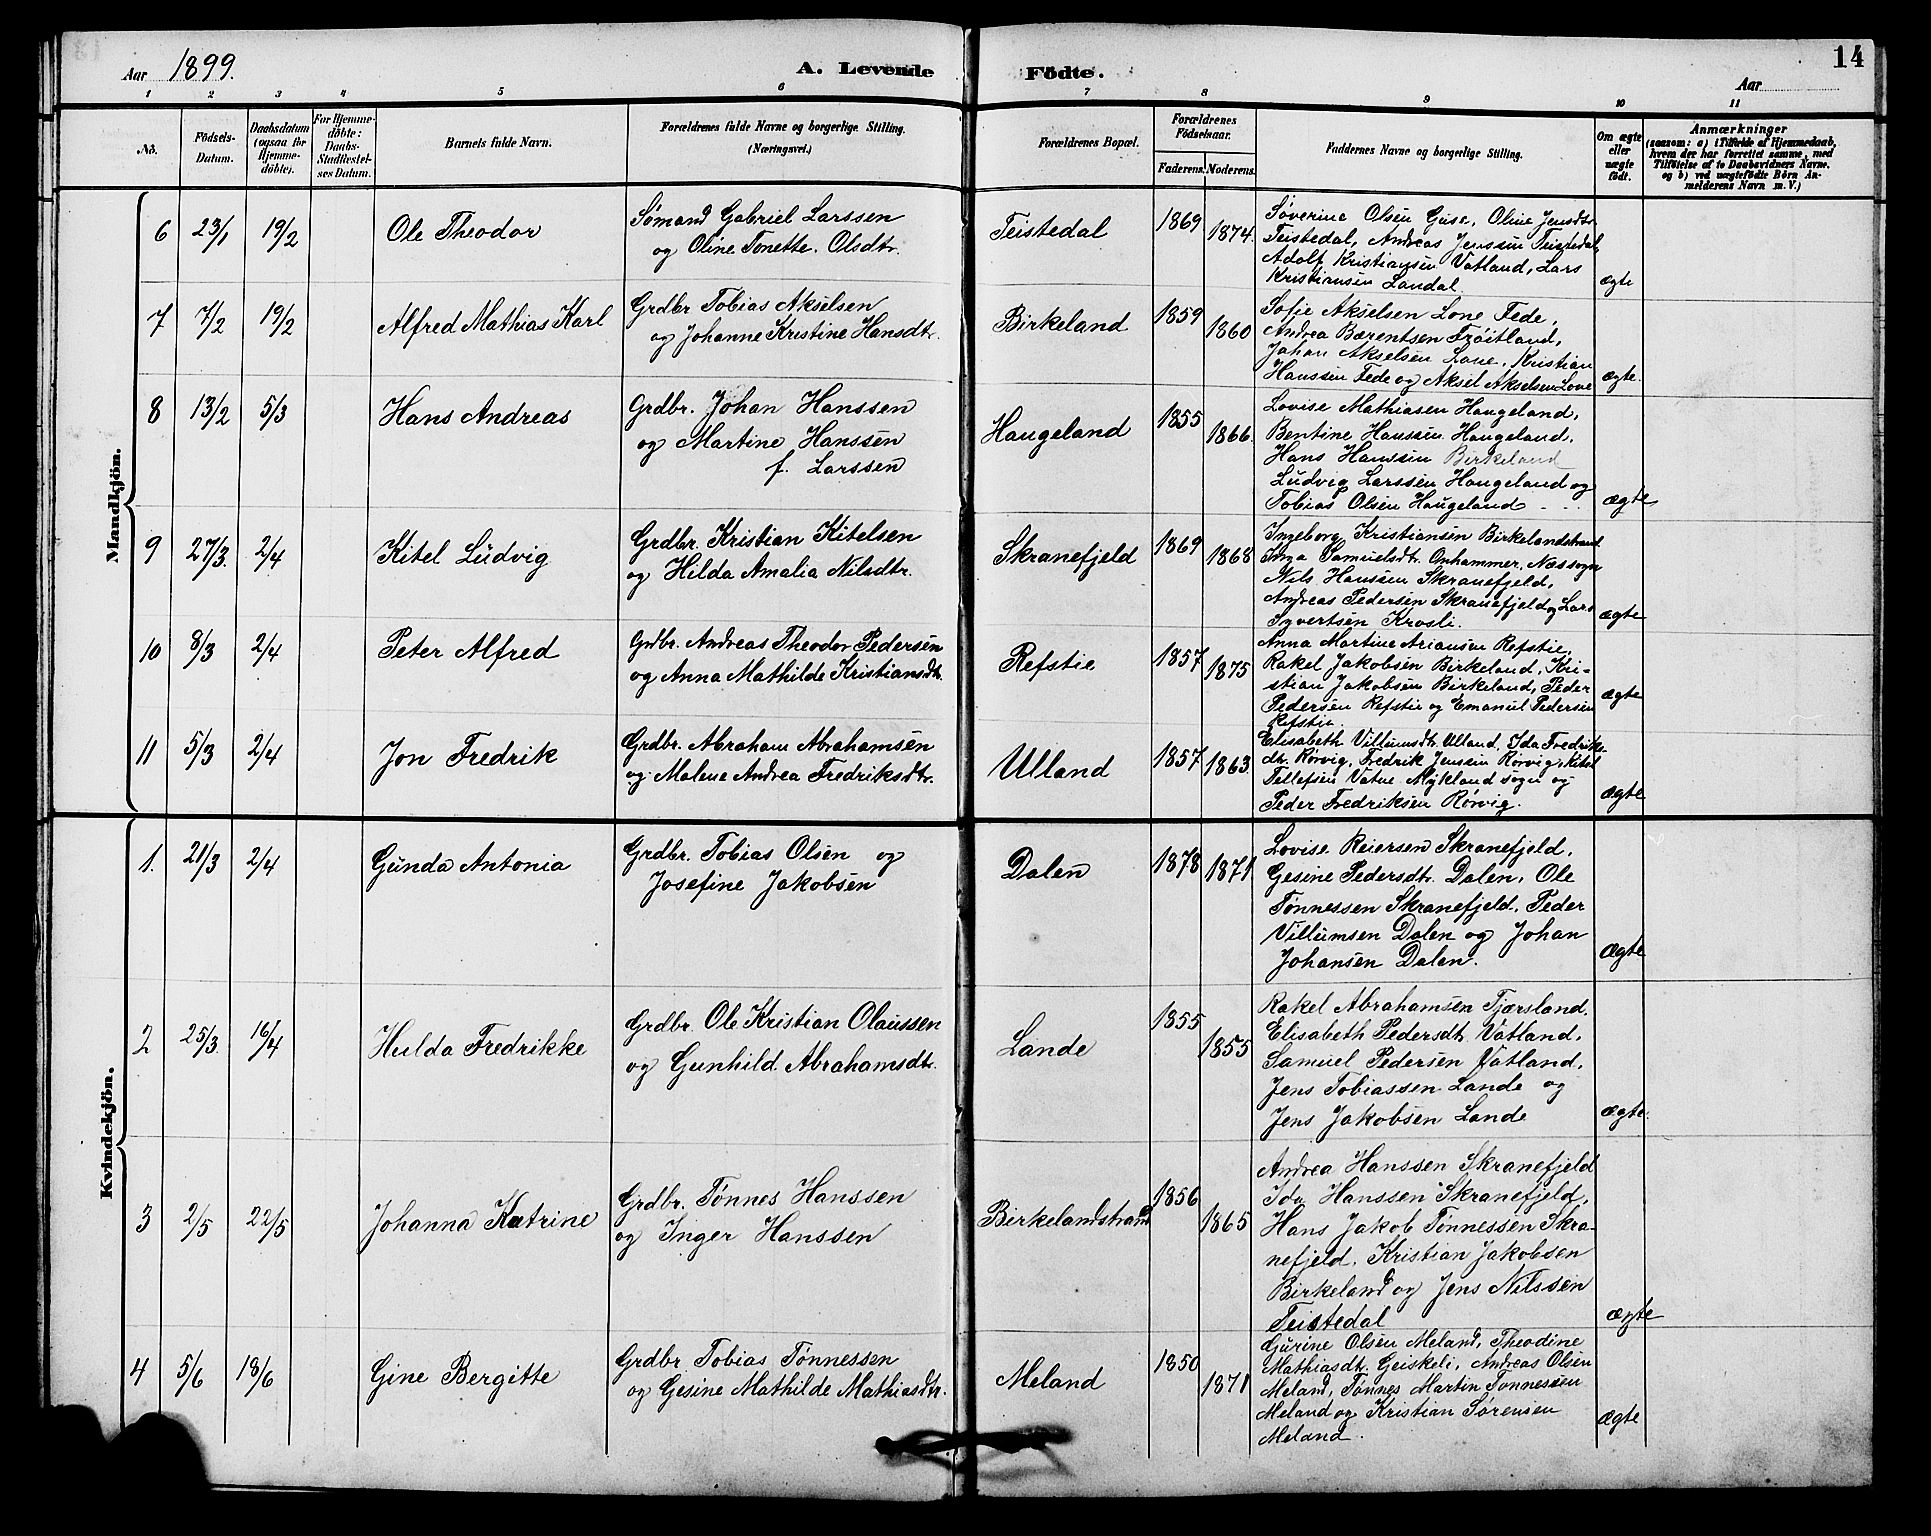 14
Aar 1899.
A. Levende Födte.
Aar
1 2 3 4 5 6 7 8 9 10 11
No.
Födsels-Datum.
Daabsdatum (ogsaa for Hjemme-döbte).
For Hjemme-döbte: Daabs-Stadfæstel-ses Datum.
Barnets fulde Navn.
Forældrenes fulde Navne og borgerlige Stilling.
(Næringsvei.)
Forældrenes Bopæl.
Forældrenes Födselsaar.
Faderens. Moderens.
Faddernes Navne og borgerlige Stilling.
Om ægte eller uægte födt.
Anmærkninger
(saasom: a) i Tilfælde af Hjemmedaab,
hvem der har forrettet samme, med
Tilföielse af to Daabsvidners Navne.
og b) ved uægtefödte Börn An-
melderens Navn m. V.)
Mandkjön.
6 23/1 19/2 Ole Theodor
Sømand Gabriel Larssen
og Oline Tonette Olsdtr.
Teistedal 1869 1874.
Søverine Olsen Guse, Oline Jensdtr
Teistedal, Andreas Jenssen Teistedal,
Adolf Kristiansen Vatland, Lars
Kristiansen Landal.
ægte
7 7/2 19/2 Alfred Mathias Karl
Grdbr Tobias Akselsen
og Johanne Kristine Hansdtr.
Birkeland 1859 1860
Sofie Akselsen Lone Fede,
Andrea Bærentsen Frøitland,
Johan Akselsen Lone, Kristian
Hanssen Fede og Aksel Akselsen Love
ægte.
8 13/2 5/3 Hans Andreas
Grdbr. Johan Hanssen
og Martine Hanssen
f. Larssen
Haugeland 1855 1866.
Lovise Mathiasen Haugeland,
Bentine Hanssen Haugeland,
Hans Hanssen Birkeland
Ludvig Larssen Haugeland og
Tobias Olsen Haugeland
ægte
9 27/3. 2/4 Kitel Ludvig
Grdbr. Kristian Kitelsen
og Hilda Amalia Nilsdtr.
Skranefjeld 1869 1868
Ingeborg Kristiansen Birkelandstrand
Samuelsdtr. Omhammer, Næssogn
Nils Hanssen Skranefjeld,
Andreas Pedersen Skranefjeld og Lars
Syvertsen Krosli.
ægte
10 8/3 2/4 Peter Alfred
Grdbr. Andreas Theodor Pedersen
og Anna Mathilde Kristiansdtr.
Refstie 1857 1875
Anna Martine Ariansen Refstie,
Rakel Jakobsen Birkeland, Kri-
stian Jakobsen Birkeland, Peder
Pedersen Refstie og Emanuel Pedersen
Refstie.
ægte
11 5/3 2/4 Jon Fredrik
Grdbr. Abraham Abrahamsen
og Malene Andrea Fredriksdtr.
Ulland 1857 1863.
Elisabeth Villumsdtr. Ulland, Ida Fredriks-
dtr. Rørvig, Fredrik Jenssen Rørvig, Kitel
Tellefsen Vatne Mykland sogn og
Peder Fredriksen Rørvig.
ægte
Kvindekjön.
1. 21/3 2/4 Gunda Antonia
Grdbr. Tobias Olsen og
Josefine Jakobsen
Dalen 1878 1871
Lovise Reiersen Skranefjeld.
Gesine Pedersdtr. Dalen, Ole
Tønnessen Skranefjeld, Peder
Villumsen Dalen og Johan
Johansen Dalen.
Ægte
2 25/3. 16/4 Hulda Fredrikke
Grdbr. Ole Kristian Olaussen
og Gunhild Abrahamsdtr.
Lande 1855 1855
Rakel Abrahamsen Tjærsland.
Elisabeth Pedersdtr. Vatland,
Samuel Pedersen Vatland,
Jens Tobiassen Lande og
Jens Jakobsen Lande
ægte.
3 2/5 22/5 Johanna Katrine
Grdbr. Tønnes Hanssen
og Inger Hanssen
Birkelandstrand 1856 1865
Andrea Hanssen Skranefjeld
Ida Hanssen Skranefjeld,
Hans Jakob Tønnessen Skra-
nefjeld, Kristian Jakobsen
Birkeland og Jens Nilssen
Teistedal
ægte
4 5/6 18/6 Gine Bergitte
Grdbr Tobias Tønnessen
og Gesine Mathilde Mathiasdtr.
Meland 1850 1871
Gurine Olsen Meland, Theodine
Mathiasdtr. Geiskeli, Andreas Olsen
Meland, Tønnes Martin Tønnessen
Meland og Kristian Sørensen
Meland.
ægte